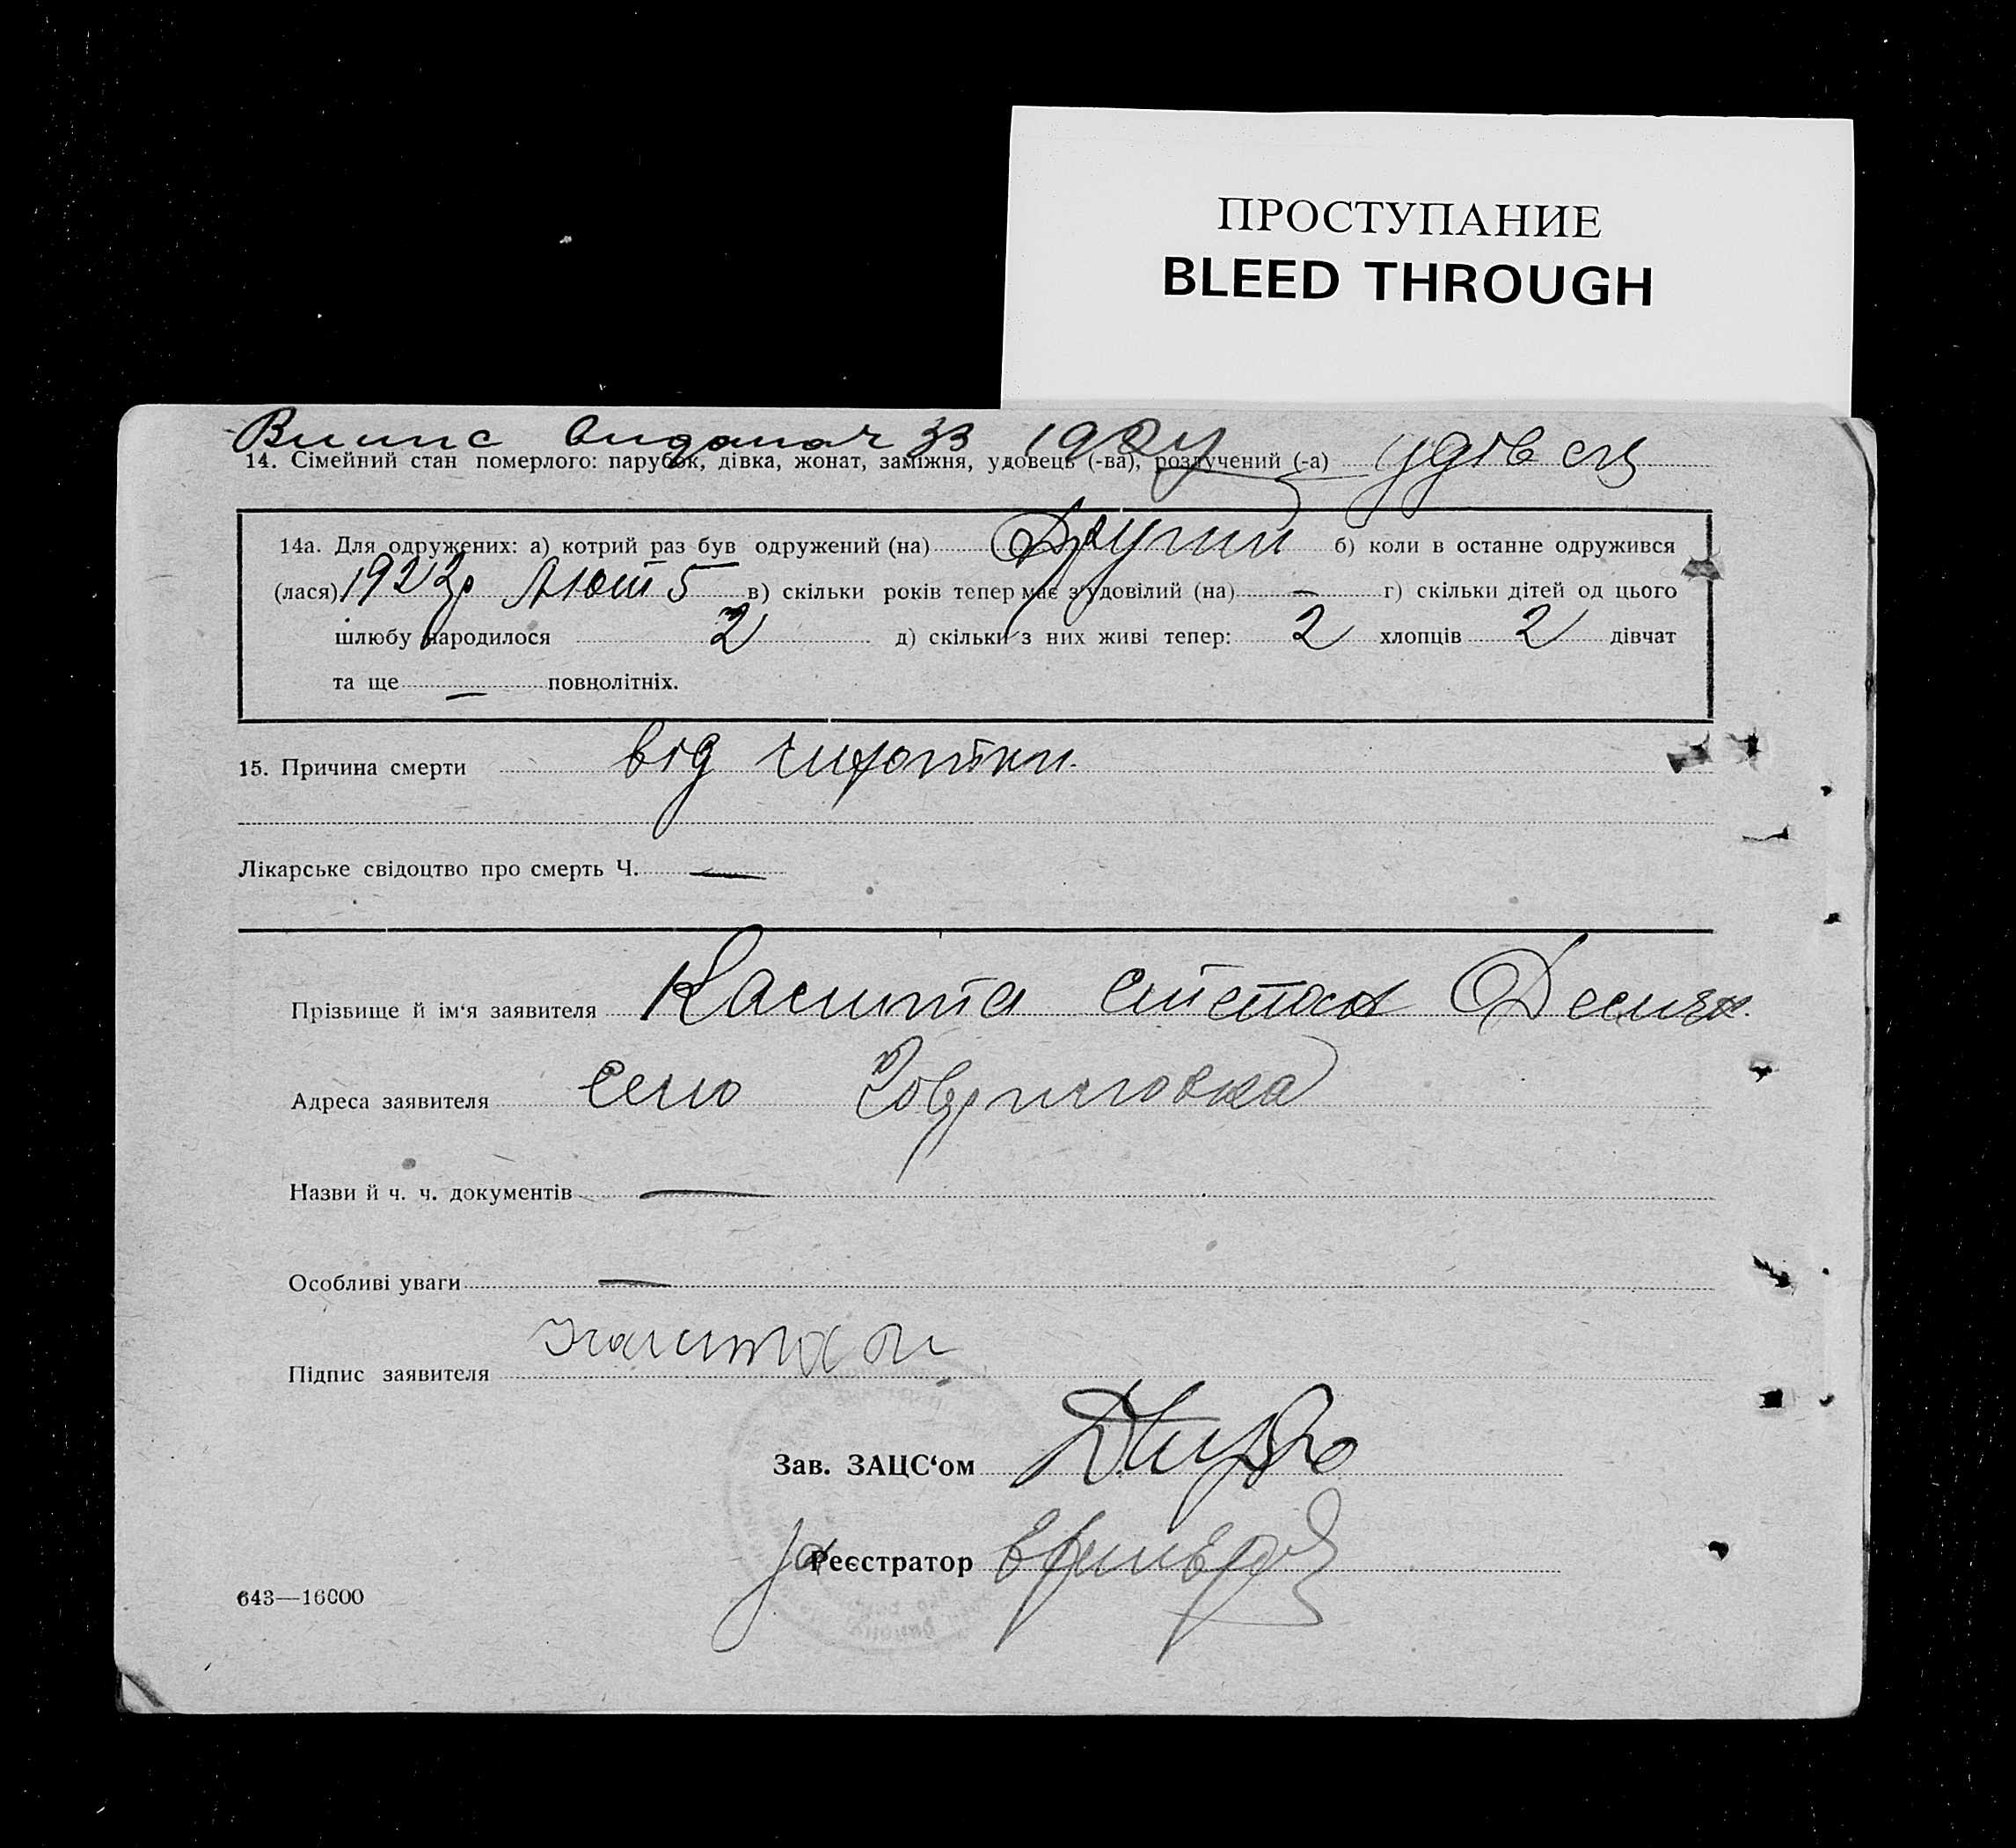 ПРОСТУПАНИЕ
BLEED THROUGH
Випис за 192
14. Сімейний стан померлого: парубок, дівка, жонат, заміжня, удовець (-ва), розлучений (-а) удівець
14а. Для одружених: а) котрий раз був одружений (на) Другий б) коли в останнє одружився
(лася) 1922р Лют 5 в) скільки років тепер має з'удовілий (на) — г) скільки дітей од цього
шлюбу народилося 2 д) скільки з них живі тепер: 2 хлопців 2 дівчат
та ще — повнолітніх.
15. Причина смерти від сухотки.
Лікарське свідоцтво про смерть Ч. —
Прізвище й ім'я заявителя Калита Степан
Адреса заявителя село
Назви й ч. ч. документів —
Особливі уваги —
Підпис заявителя Калита
Зав. ЗАЦС'ом
за Реєстратор
643—16000